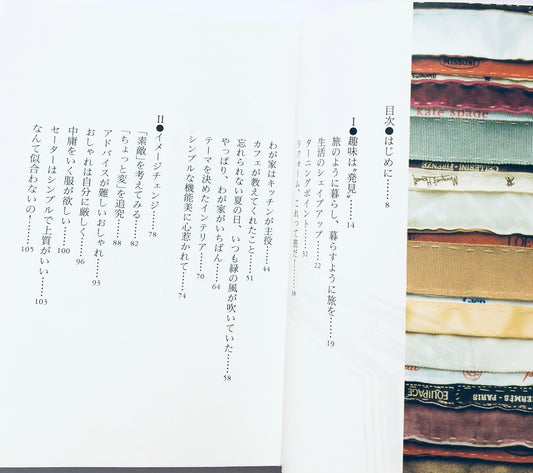 目次●はじめに……8
I●趣味は〝発見〟……14
旅のように暮らし、暮らすように旅を……19
生活のシェイプアップ……22
ターニングポイント……32
わが家はキッチンが主役……44
カフェが教えてくれたこと……51
忘れられない夏の日、いつも緑の風が吹いていた……58
やっぱり、わが家がいちばん……64
テーマを決めたインテリア……70
シンプルな機能美に心惹かれて……74
II●イメージチェンジ……78
「素敵」を考えてみる……82
「ちょっと変」を追究……88
アドバイスが難しいおしゃれ……93
おしゃれは自分に厳しく……96
中庸をいく服が欲しい……100
セーターはシンプルで上質がいい……103
なんて似合わないの！……105
kate spade
EQUIPAGE
HERMÈS - PARIS